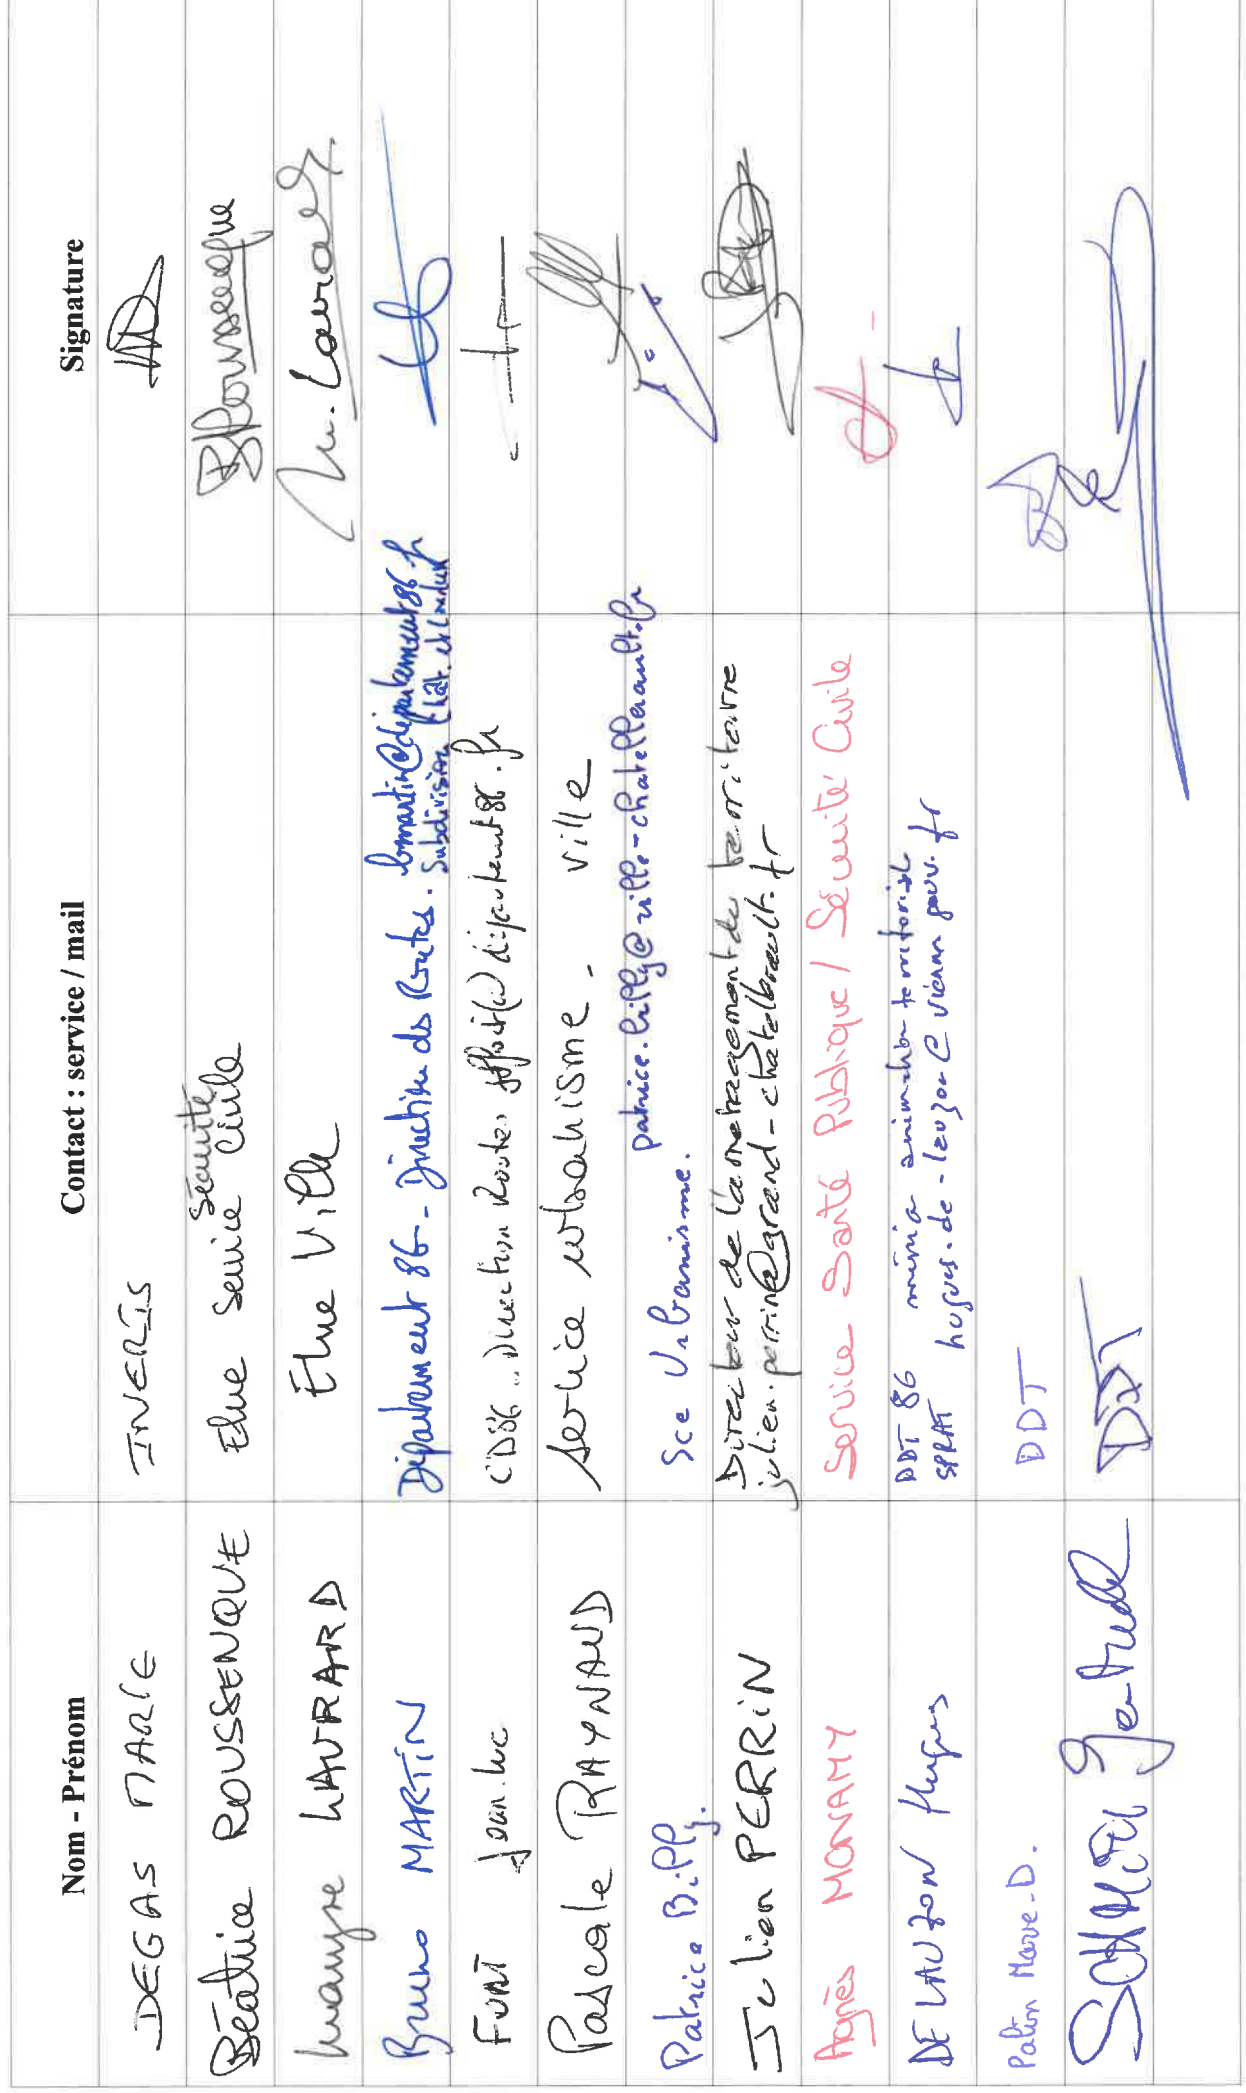 Nom - Prénom Contact : service / mail Signature
DEGAS MARIE INERIS
Béatrice ROUSSENQUE Elue Service Sécurité Civile BRoussenque
Maryse LAVRARD Elue Ville M. Lavrard
Bruno MARTIN Département 86 - Direction des Routes. bmartin@departement86.fr
Subdivision Chat. et Loudun
FORT Jean-luc CD86 - Direction Routes jlfort(@)departement86.fr
Pascale RAYNAUD service urbanisme - ville
Patrice Billy. Sce Urbanisme. patrice.billy@ville-chatellerault.fr
Julien PERRIN Directeur de l'aménagement du territoire
julien.perrin@grand-chatellerault.fr
Agnès MONAMY Service Santé Publique / Sécurité Civile
DE LAUZON Hugues DDT 86 territorial
SPRAT hugues.de-lauzon@vienne.gouv.fr
Patin Marie-D. DDT
Gertrude DDT